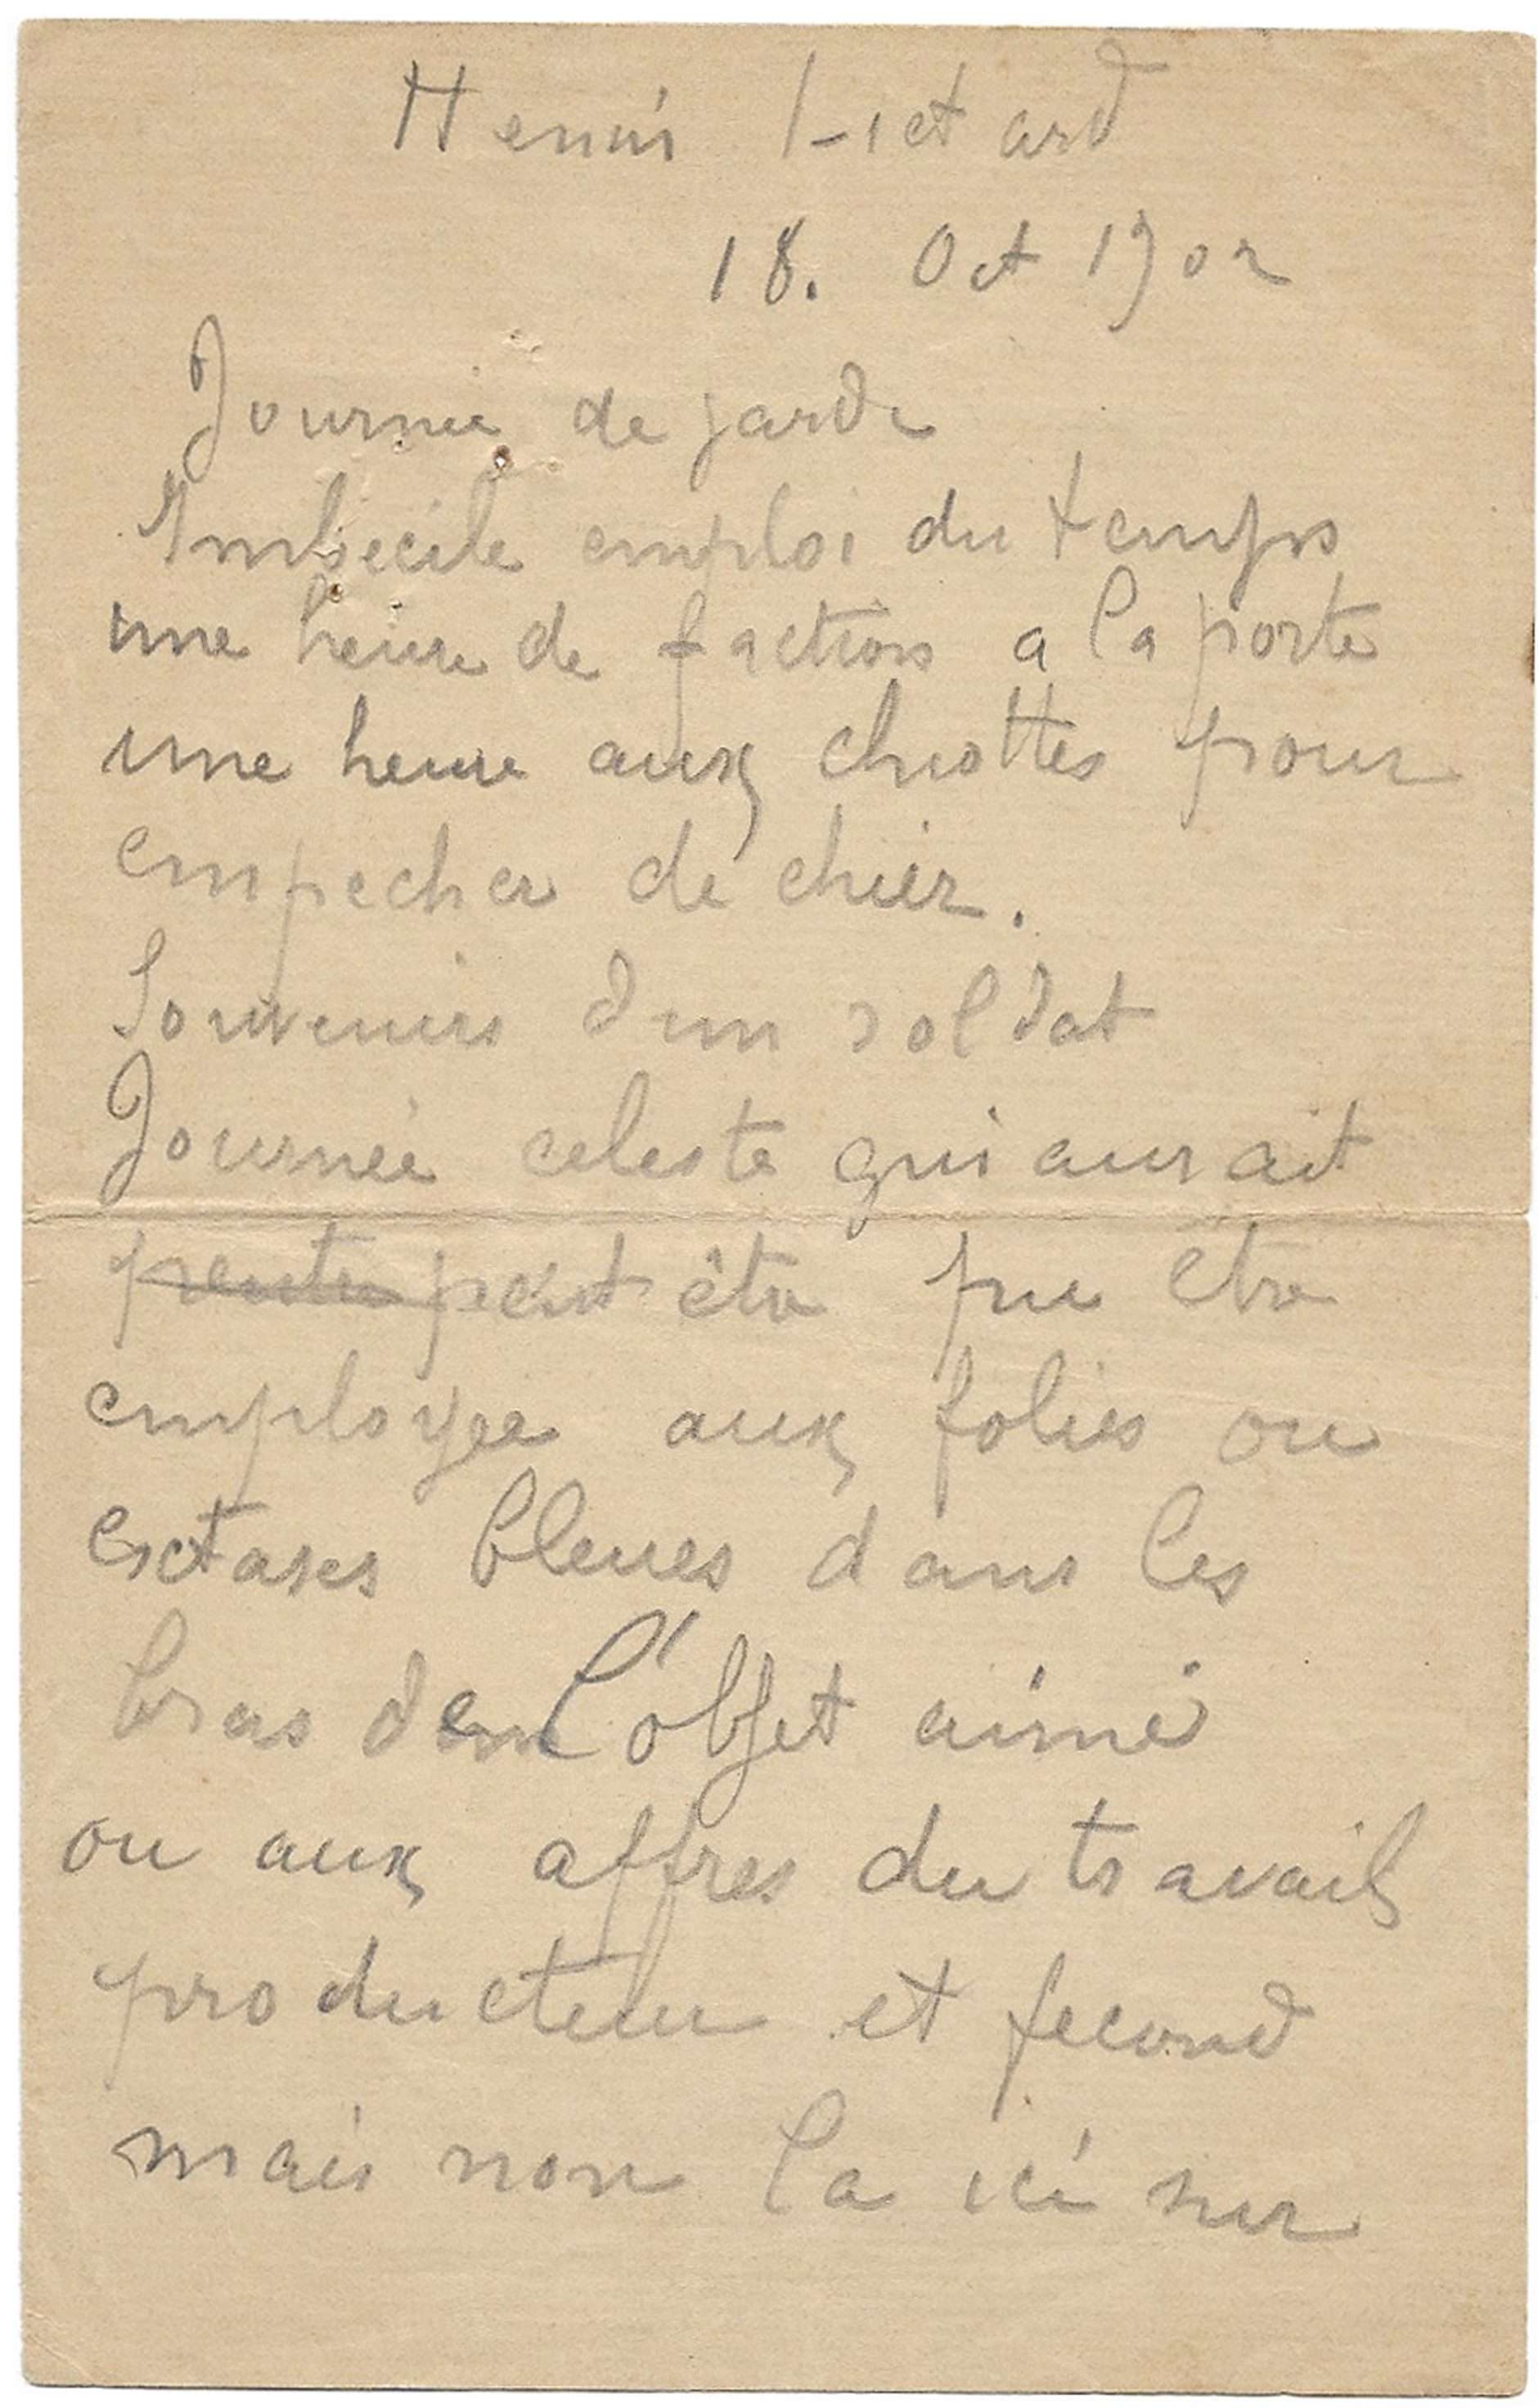 Henri
18. Oct 1902
Journée de garde
Imbecile emploi du temps
une heure de faction a la porte
une heure aux chiottes pour
empecher de chier.
Souvenirs dun soldat
Journée celeste qui aurait
peut être pu être
employee aux folies ou
extases bleues dans les
bras de l'objet aimé
ou aux affres du travail
producteur et fecond
mais non la ici sur